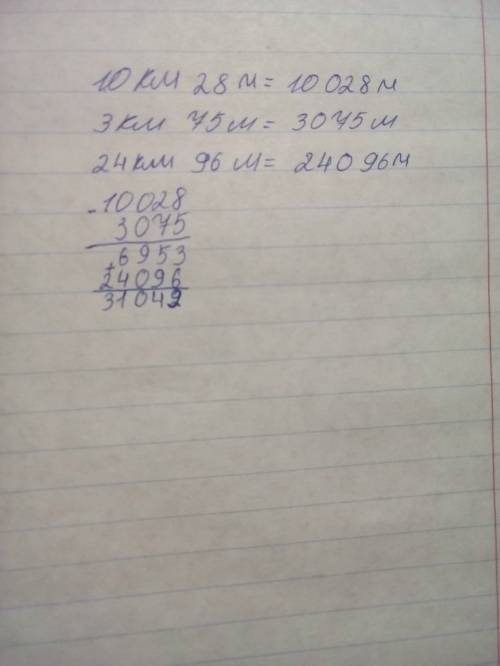 10 км 28 м = 10 028 м
3 км 75 м = 3075 м
24 км 96 м = 24 096 м
- 10028
3075
6953
+
24096
31049